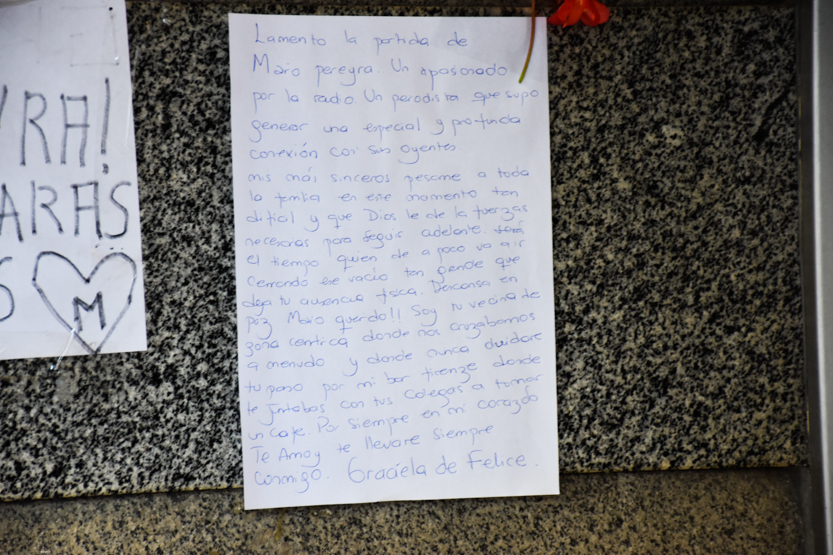 RA!
ARÁS
S
M
Lamento la partida de
Mario pereyra. Un apasonado
por la radio. Un perodista que supo
generar una especial y profunda
conexión con sus oyentes
mis más sinceros pesame a toda
la familia en este momento tan
dificial y que Dios le de la fuerzas
necesarias para seguir adelante.
el tiempo quien de a poco va a ir
cerrando ese vacío tan grande que
deja tu ausencia fisca. Descansa en
paz Mario querido!! Soy tu vecina de
zona centrica donde nos cruzabamos
a menudo y donde nunca olvidare
tu paso por mi bar firenze donde
te juntabas con tus colegas a tomar
un cafe. Por siempre en mi corazón
Te Amo y te llevare siempre
conmigo. Graciela de Felice.